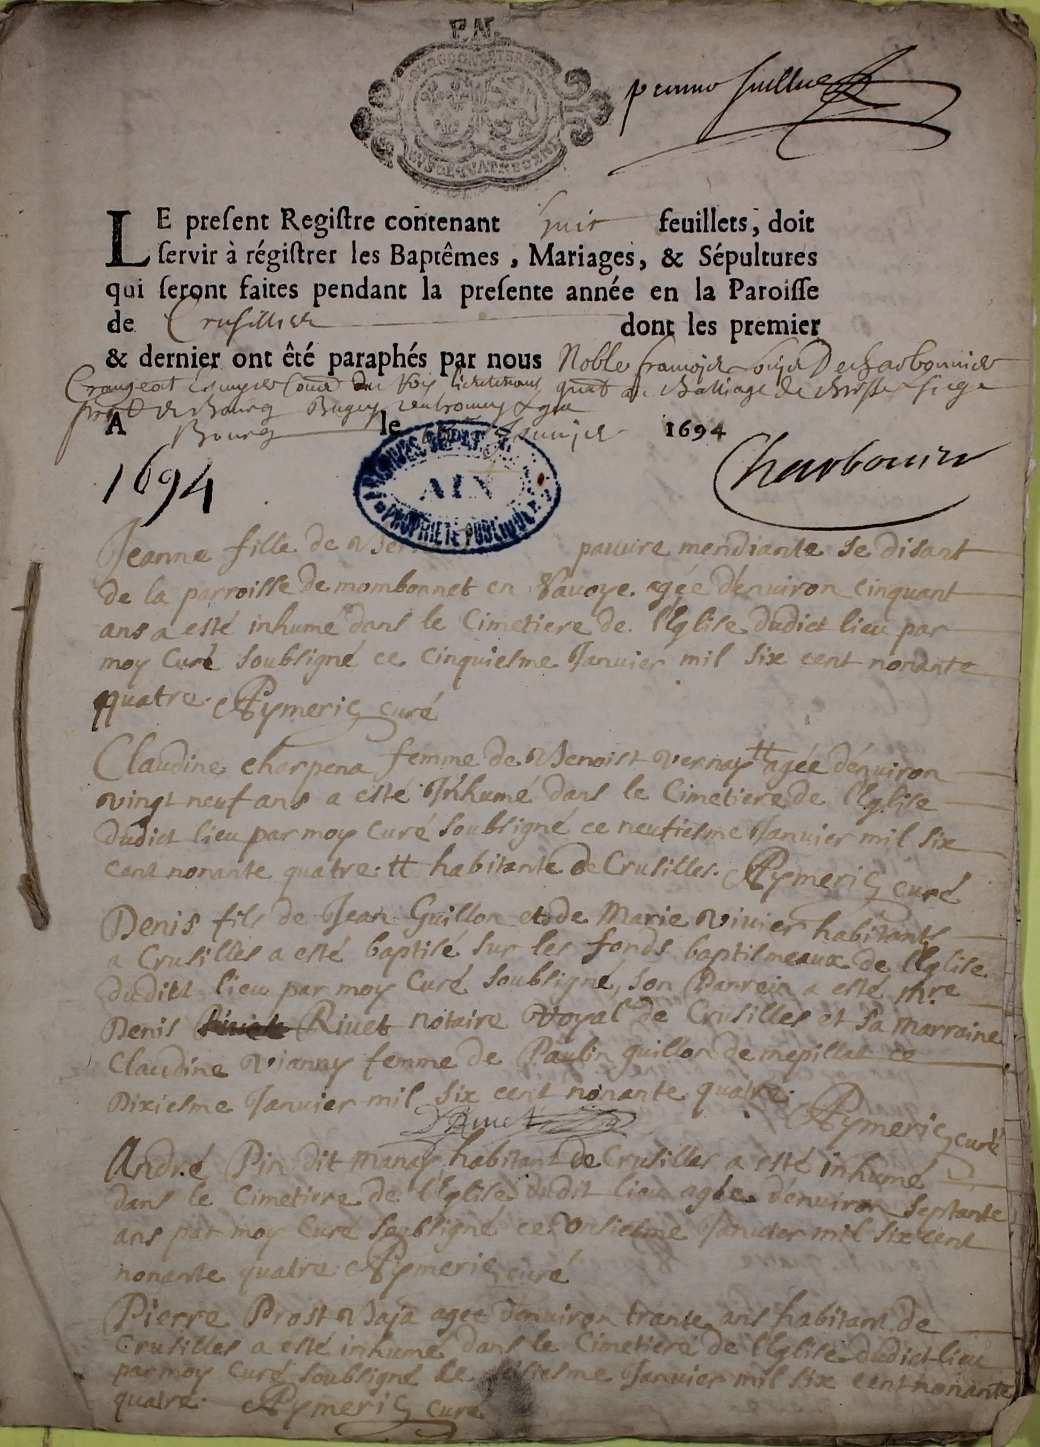 P. N.
LE present Registre contenant huit feuillets, doit
servir à régistrer les Baptêmes, Mariages, & Sépultures
qui seront faites pendant la presente année en la Paroisse
de Crusillies dont les premier
& dernier ont êté paraphés par nous Noble françois
du Roy lieutenant au Balliage de Bresse
Bourg Bugey
A Bourg le 1694
1694
Charbonier
ARCHIVES DEPART. AIN PROPRIETE PUBLIQUE
Jeanne fille de pauure mendiante se disant
de la parroisse de mombonnet en Sauoye. agée d'enuiron cinquant
ans a esté inhumé dans le Cimetiere de l'Eglise dudict lieu par
moy Curé soubsigné ce cinquiesme Januier mil six cent nonante
quatre. Aymeric curé
Claudine charpena femme de Benoist vernay tt agée d'enuiron
vingt neuf ans a esté Inhumé dans le Cimetiere de l'Eglise
dudict lieu par moy Curé soubsigné ce neufiesme Januier mil six
cent nonante quatre. tt habitante de Crusilles. Aymeric curé
Denis fils de Jean Guillon et de Marie viuier habitants
a Crusilles a esté baptisé sur les fonds baptismeaux de l'Eglise
dudict lieu par moy Curé soubsigné, son Parrein a esté mre
Denis Riuet notaire Royal de Crusilles et sa marraine
Claudine vianny femme de Paulin guillon de mepillat ce
Dixiesme Januier mil six cent nonante quatre.
Aymeric curé
André Pin dit manay habitant de Crusilles a esté inhumé
dans le Cimetiere de l'Eglise dudit lieu agée d'enuiron septante
ans par moy Curé soubsigné ce onsiesme Januier mil six cent
nonante quatre Aymeric curé
Pierre Prost agée d'enuiron trante ans habitant de
Crusilles a esté inhumé dans le Cimetiere de l'Eglise dudict lieu
par moy Curé soubsigné le Januier mil six cent nonante
quatre. Aymeric curé